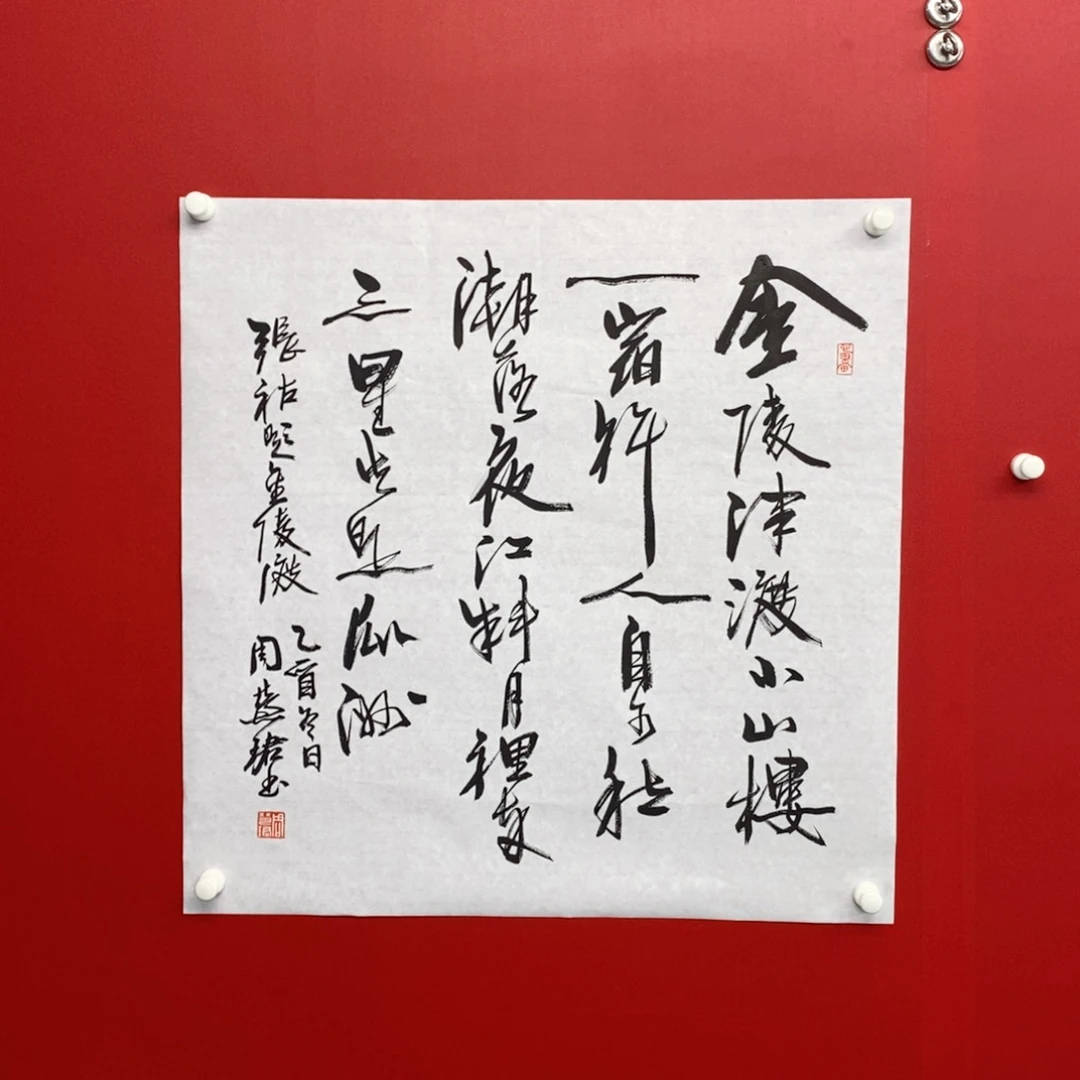 金陵津渡小山樓
一宿行人自可愁
潮落夜江斜月裡兩
三星火是瓜洲
張祜題金陵渡
乙酉冬日
周慧珺書